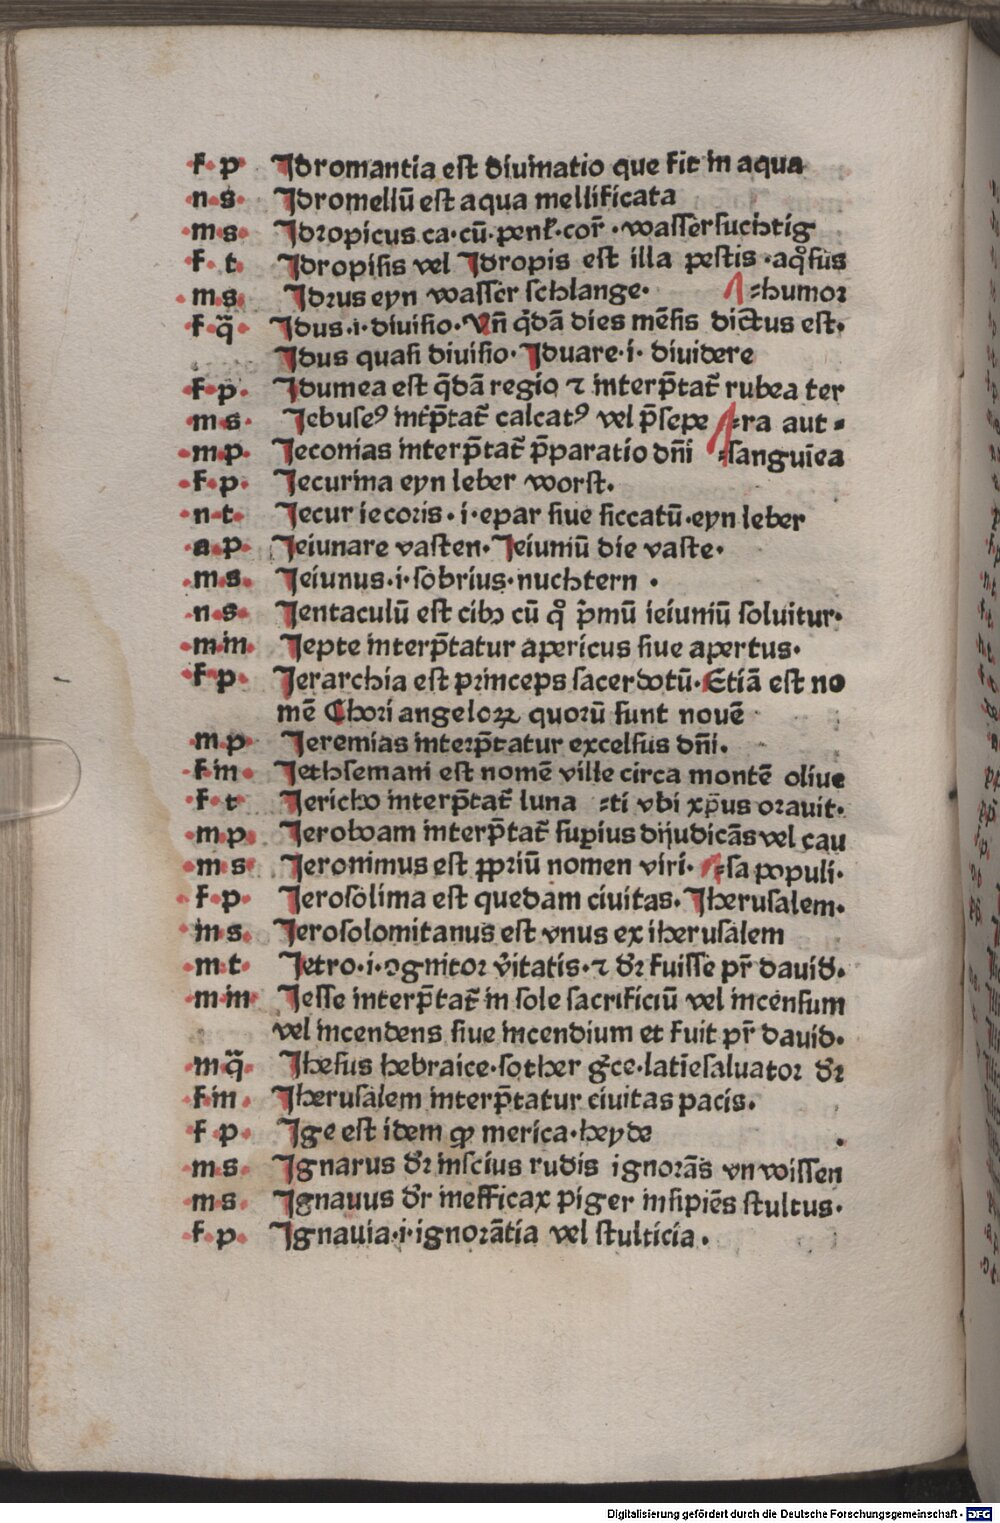 f p Jdromantia est diuinatio que fit in aqua
n s Jdromellū est aqua mellificata
m s Jdropicus ca·cū·penl̉·cor̄ ·wassersuchtig
f t Jdropisis vel Jdropis est illa pestis ·aqͦsus
m s Jdrus eyn wasser schlange· ⸗humor
f q̄ Jdus·i·diuisio·Vn̄ q̄dā dies mēsis dictus est·
Jdus quasi diuisio·Jduare·i· diuidere
f p Jdumea est q̄dā regio ⁊ interp̄tat̄ rubea ter
m s Jebuseꝰ int̄p̄tat̄ calcatꝰ vel p̄sepe ⸗ra aut⸗
m p Jeconias interp̄tat̄ p̄paratio dn̄i ⸗sanguīea
f p Jecurina eyn leber worst·
n t Jecur iecoris·i·epar siue siccatū·eyn leber
a p Jeiunare vasten·Jeiuniū die vaste·
m s Jeiunus·i·sobrius·nuchtern ·
n s Jentaculū est cibꝰ cū qͦ p̄mū ieiuniū soluitur·
m in Jepte interp̄tatur apericus siue apertus·
f p Jerarchia est princeps sacerdotū·Etiā est no
mē Chori angeloꝝ quorū sunt nouē
m p Jeremias interp̄tatur excelsus dn̄i·
f in Jethsemani est nomē ville circa montē oliue
f t Jericho interp̄tat̄ luna ⸗ti vbi xp̄us orauit·
m p Jeroboam interp̄tat̄ suꝑius dijudicās vel cau
m s Jeronimus est ꝓpriū nomen viri· ⸗sa populi·
f p Jerosolima est quedam ciuitas·Jherusalem·
m s Jerosolomitanus est vnus ex iherusalem
m t Jetro·i·ꝯgnitor v̄itatis·⁊ dr̄ fuisse pr̄ dauid·
m in Jesse interp̄tat̄ in sole sacrificiū vel incensum
vel incendens siue incendium et fuit pr̄ dauid·
m q̄ Jhesus hebraice·sother gͨce·latīe saluator dr̄
f in Jherusalem interp̄tatur ciuitas pacis·
f p Jge est idem qͦ merica·heyde
m s Jgnarus dr̄ inscius rudis ignorās vnwissen
m s Jgnauus dr̄ inefficax piger insipiēs stultus·
f p Jgnauia·i·ignorātia vel stulticia·
Digitalisierung gefördert durch die Deutsche Forschungsgemeinschaft - DFG